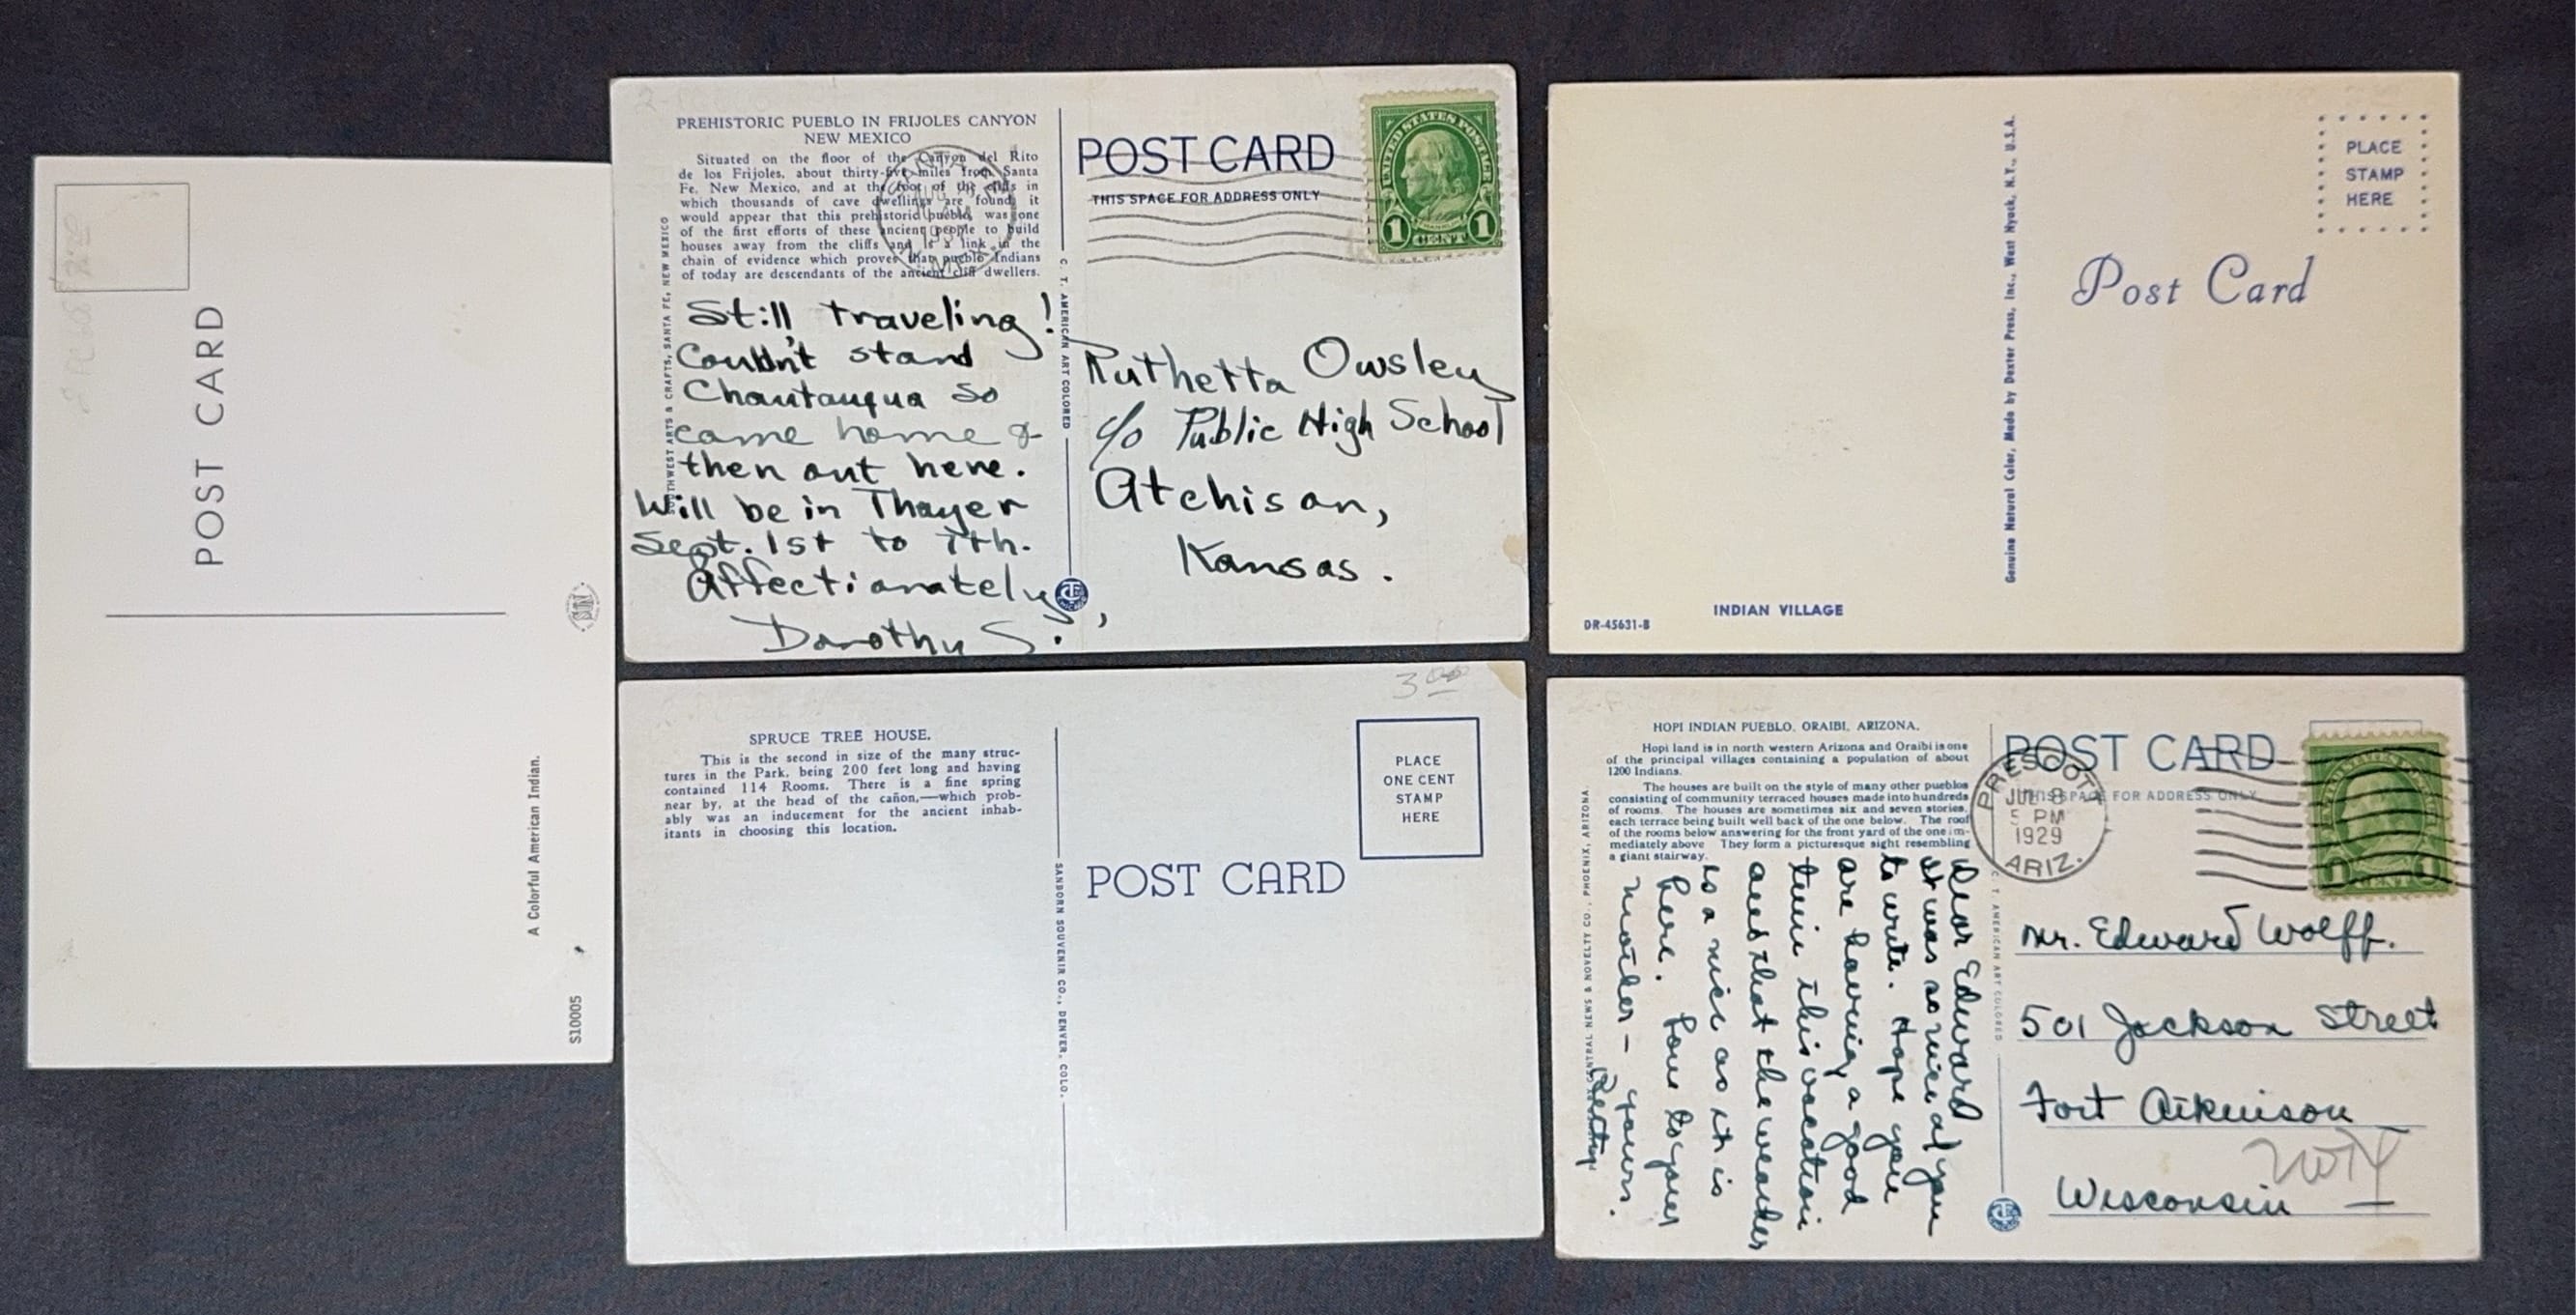 POST CARD
A Colorful American Indian.
S10005
PREHISTORIC PUEBLO IN FRIJOLES CANYON
NEW MEXICO
Situated on the floor of the Canyon del Rito
de los Frijoles, about thirty-five miles from Santa
Fe, New Mexico, and at the foot of the cliffs in
which thousands of cave dwellings are found, it
would appear that this prehistoric pueblo was one
of the first efforts of these ancient people to build
houses away from the cliffs and is a link in the
chain of evidence which proves that pueblo Indians
of today are descendants of the ancient cliff dwellers.
SOUTHWEST ARTS & CRAFTS, SANTA FE, NEW MEXICO
Still traveling!
Couldn't stand
Chautauqua so
came home &
then out here.
Will be in Thayer
Sept. 1st to 7th.
Affectionately,
Dorothy S.
C. T. AMERICAN ART COLORED
POST CARD
THIS SPACE FOR ADDRESS ONLY
UNITED STATES POSTAGE
1 CENT 1
Ruthetta Owsley
c/o Public High School
Atchison,
Kansas.
PLACE
STAMP
HERE
Post Card
Genuine Natural Color, Made by Dexter Press, Inc., West Nyack, N.Y., U.S.A.
INDIAN VILLAGE
DR-45631-B
3 00
SPRUCE TREE HOUSE.
This is the second in size of the many struc-
tures in the Park, being 200 feet long and having
contained 114 Rooms. There is a fine spring
near by, at the head of the cañon,—which prob-
ably was an inducement for the ancient inhab-
itants in choosing this location.
SANBORN SOUVENIR CO., DENVER, COLO.
PLACE
ONE CENT
STAMP
HERE
POST CARD
HOPI INDIAN PUEBLO, ORAIBI, ARIZONA.
Hopi land is in north western Arizona and Oraibi is one
of the principal villages containing a population of about
1200 Indians.
The houses are built on the style of many other pueblos
consisting of community terraced houses made into hundreds
of rooms. The houses are sometimes six and seven stories,
each terrace being built well back of the one below. The roof
of the rooms below answering for the front yard of the one im-
mediately above They form a picturesque sight resembling
a giant stairway.
CENTRAL NEWS & NOVELTY CO., PHOENIX, ARIZONA.
Dear Edward
It was so nice of you
to write. Hope you
are having a good
time this vacation
and that the weather
is a nice as it is
here. Love to your
mother - yours.
C. T. AMERICAN ART COLORED
POST CARD
THIS SPACE FOR ADDRESS ONLY
PRESCOTT
JUL 8
5 PM
1929
ARIZ.
1 CENT 1
Mr. Edward Wolff.
501 Jackson Street
Fort Atkinson
Wisconsin